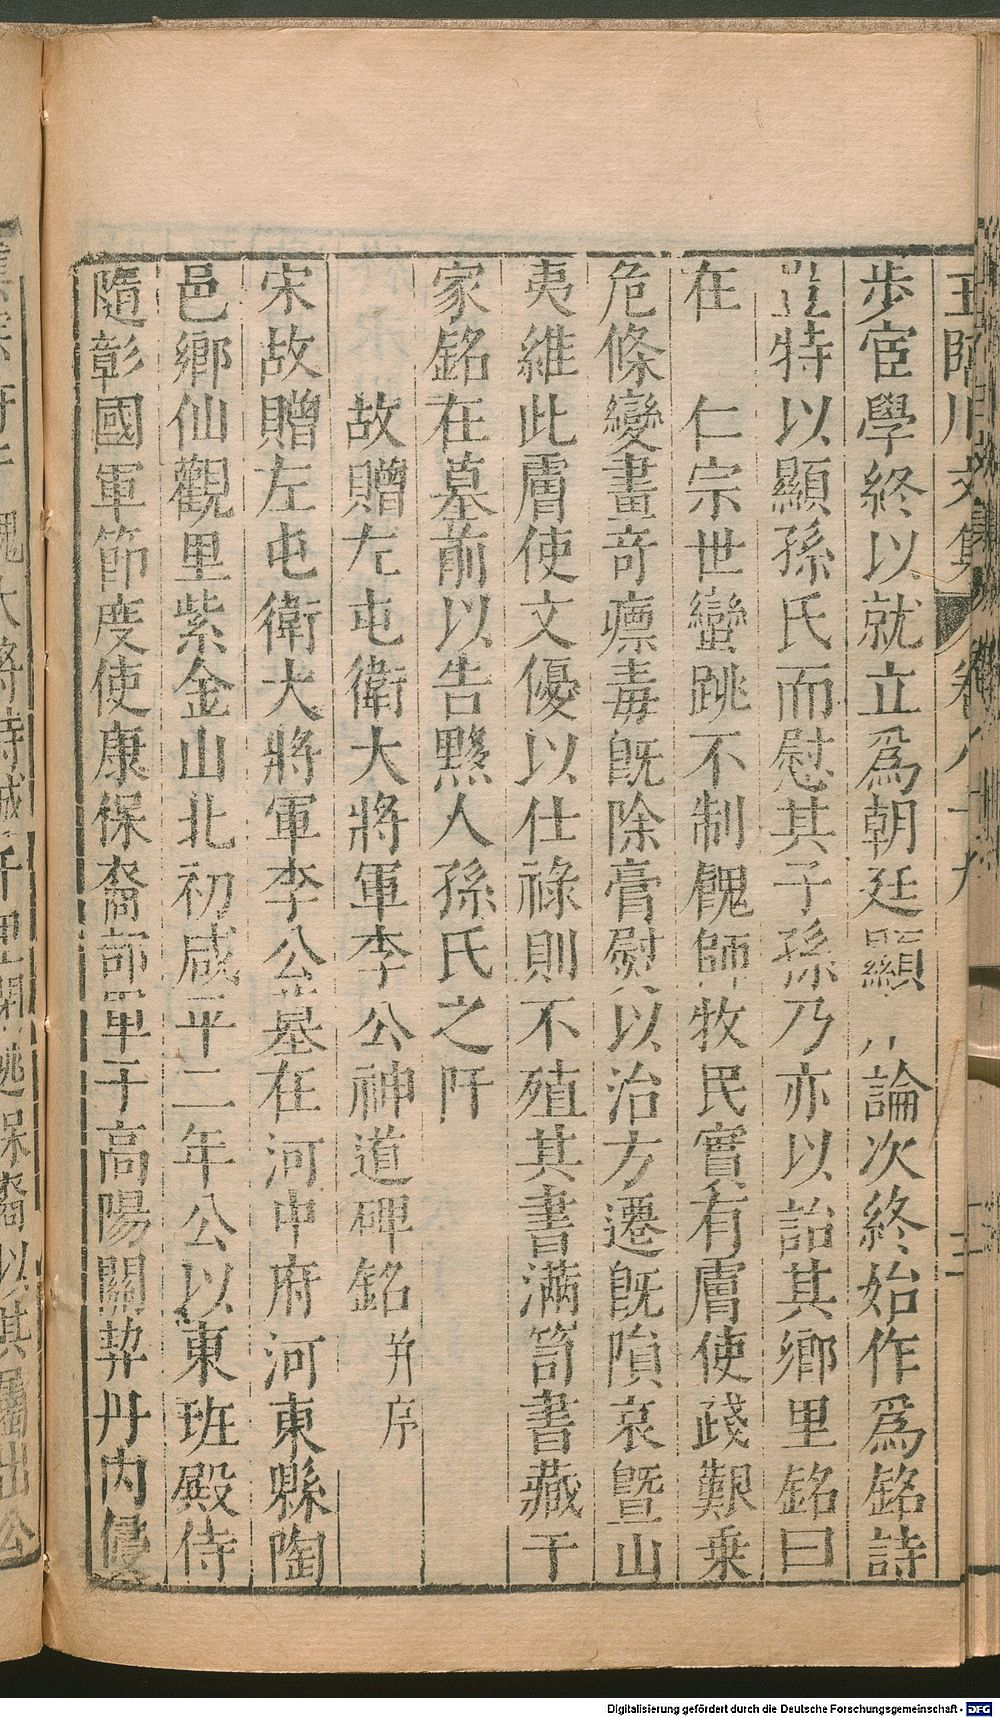 王臨川文集　卷八十九
步宦學終以就立爲朝廷顯　論次終始作爲銘詩
並特以顯孫氏而慰其子孫乃亦以詒其鄉里銘曰
在　仁宗世蠻跳不制餽師牧民實有膚使踐艱乗
危條變畫奇瘭毒旣除膏熨以治方遷旣隕哀曁山
夷維此膚使文優以仕祿則不殖其書滿笥書藏于
家銘在墓前以告黟人孫氏之阡
故贈左屯衛大將軍李公神道碑銘 并序
宋故贈左屯衛大將軍李公墓在河中府河東縣陶
邑鄉仙觀里紫金山北初咸平二年公以東班殿侍
隨彰國軍節度使康保裔部軍于高陽關契丹內侵
Digitalisierung gefördert durch die Deutsche Forschungsgemeinschaft - DFG